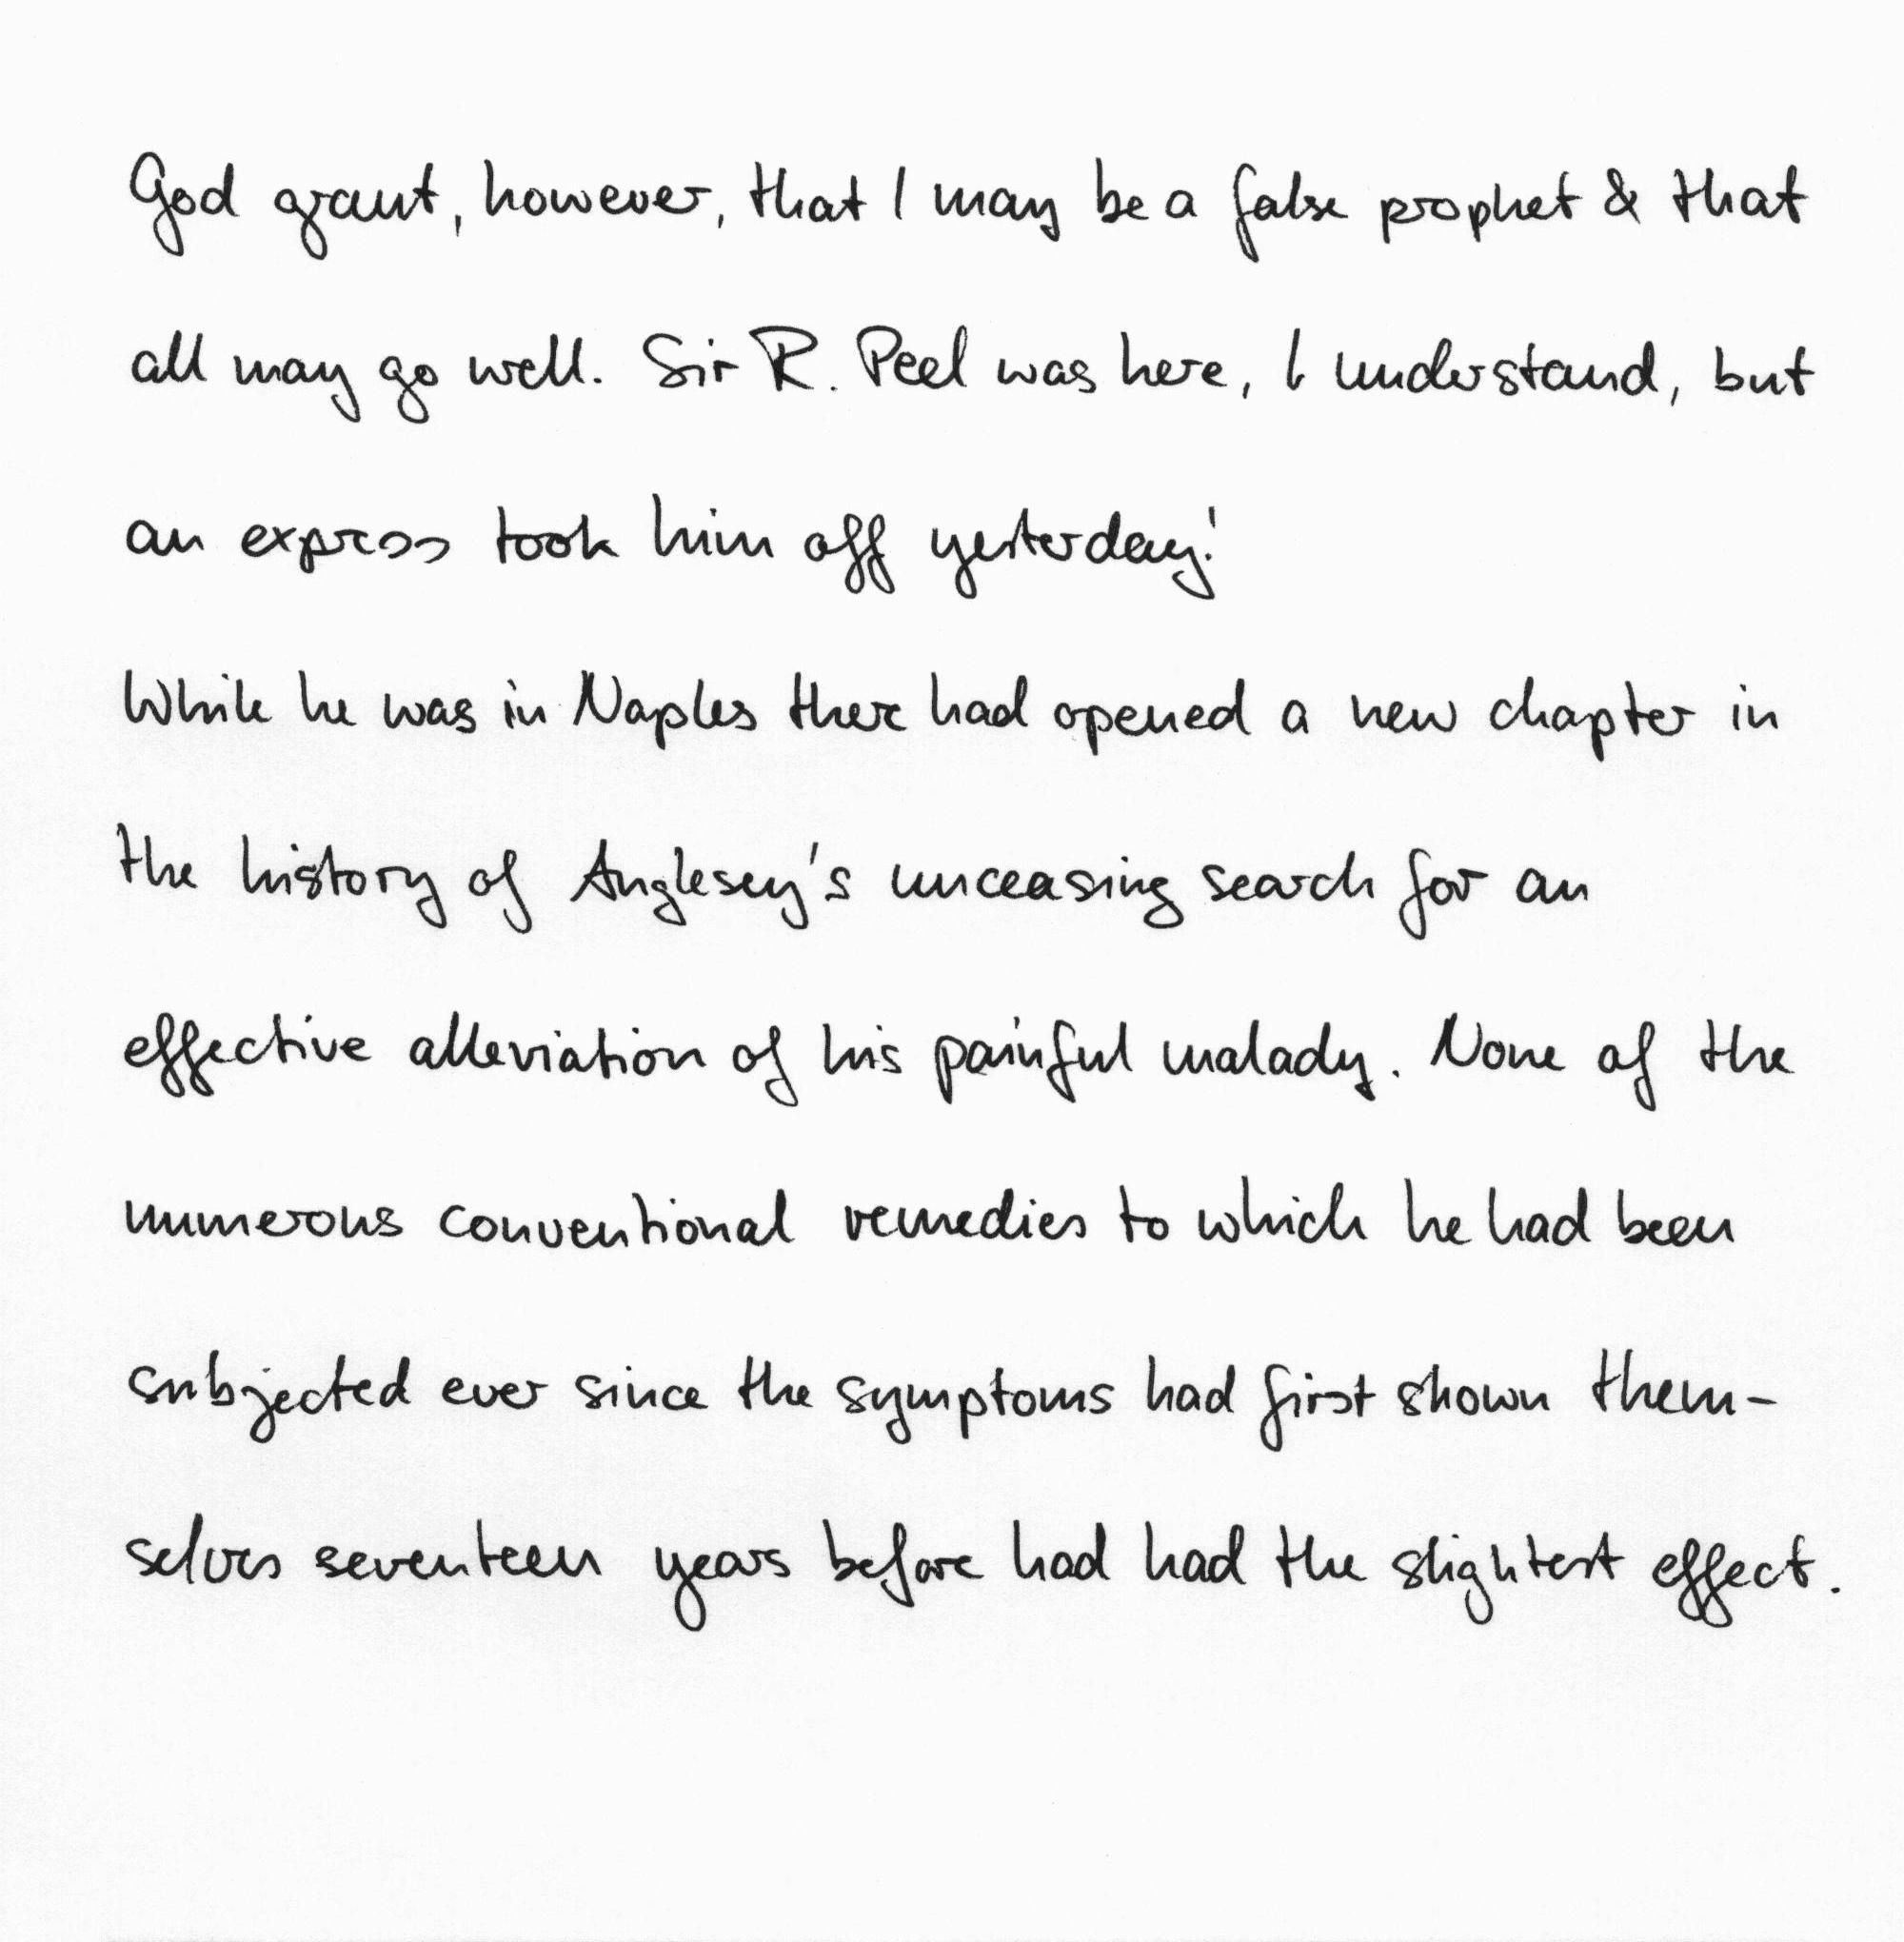 God grant, however, that I may be a false prophet & that
all may go well. Sir R. Peel was here, I understand, but
an express took him off yesterday!'
While he was in Naples there had opened a new chapter in
the history of Anglesey's unceasing search for an
effective alleviation of his painful malady. None of the
numerous conventional remedies to which he had been
subjected ever since the symptoms had first shown them-
selves seventeen years before had had the slightest effect.